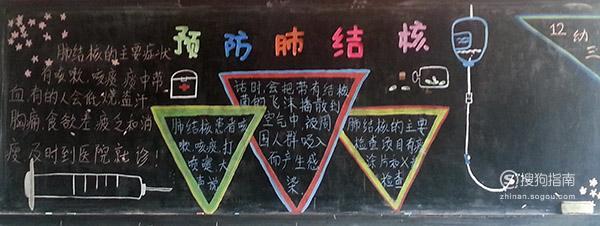 预防肺结核
肺结核的主要症状
有咳嗽、咳痰、痰中带
血,有的人会低烧盗汗
胸痛、食欲差、疲乏和消
瘦及时到医院就诊!
肺结核患者咳
嗽、咳痰、打
喷嚏、大
声说
话时,会把带有结核
菌的飞沫播散到
空气中,被周
围人群吸入
而产生感
染
肺结核的主要
检查项目有痰
涂片和X光
检查
12幼
三
搜狗指南
zhinan.sogou.com